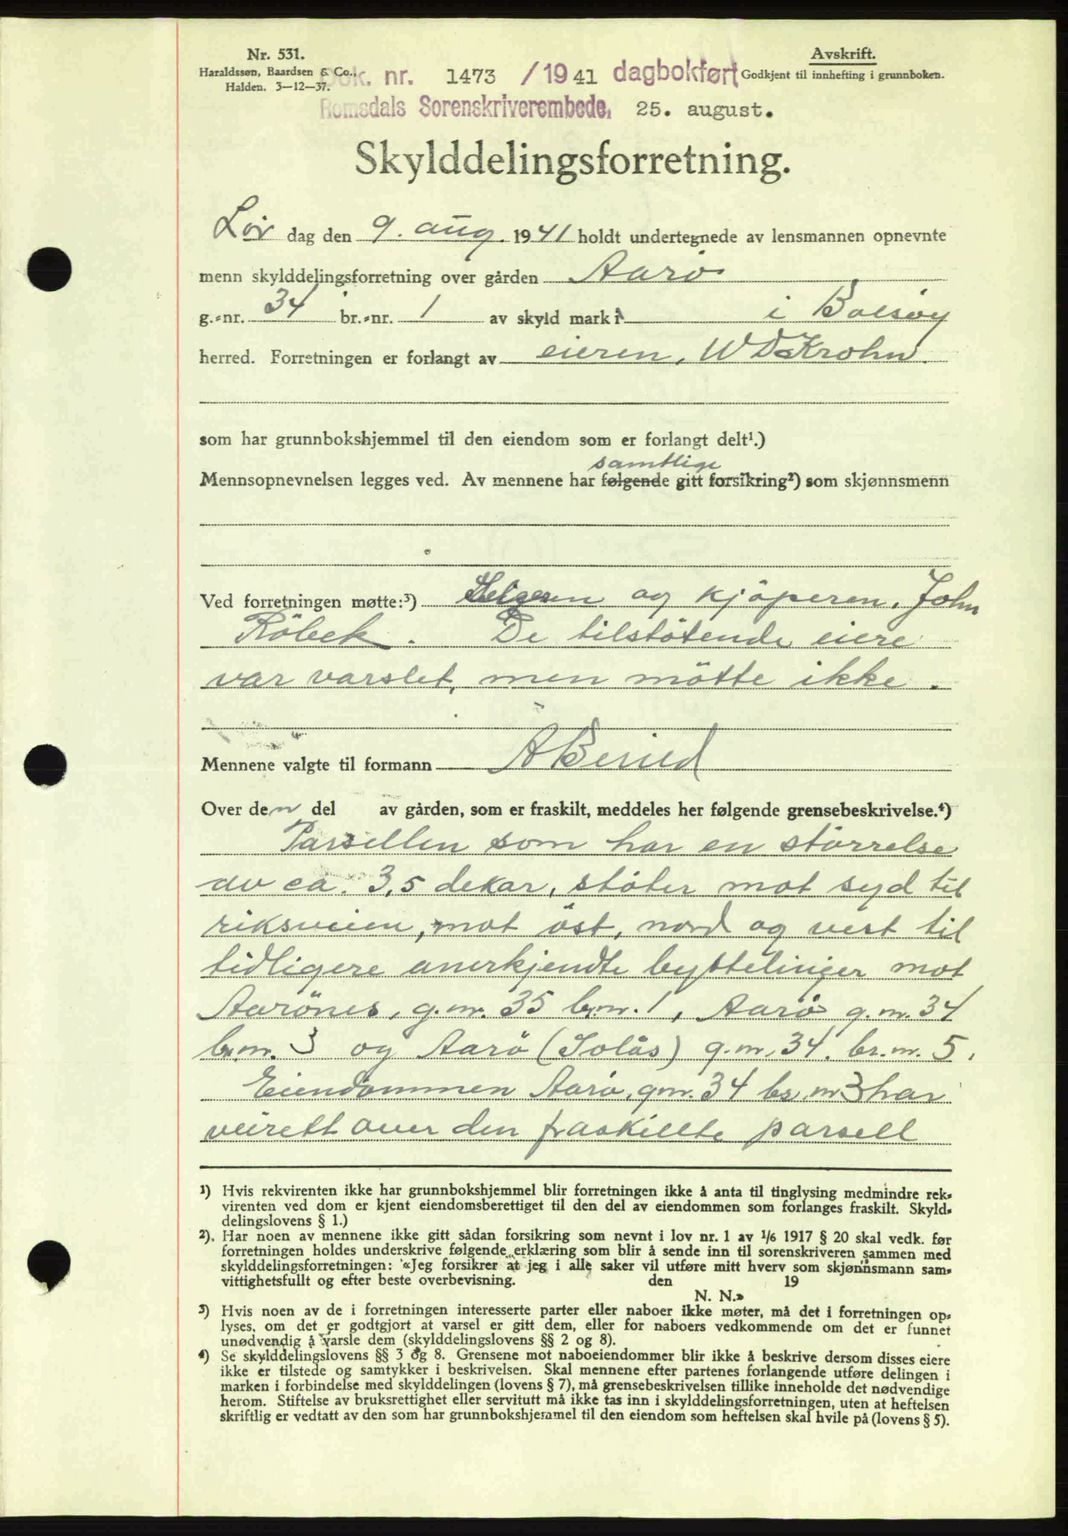 Nr. 531.
Haraldssøn, Baardsen & Co.,
Halden. 3—12—37.
Avskrift.
Godkjent til innhefting i grunnboken.
Dok. nr. 1473 /1941 dagbokført
Romsdals Sorenskriverembede, 25. august.
Skylddelingsforretning.
Lør dag den 9. aug. 1941 holdt undertegnede av lensmannen opnevnte
menn skylddelingsforretning over gården Aarö
g.-nr. 34 br.-nr. 1 av skyld mark i Bolsøy
herred. Forretningen er forlangt av eieren, W D Krohn.
som har grunnbokshjemmel til den eiendom som er forlangt delt¹.)
samtlige
Mennsopnevnelsen legges ved. Av mennene har følgende gitt forsikring²) som skjønnsmenn
Ved forretningen møtte:³) og kjöperen, John
Röbek. De tilstötende eiere
var varslet, men mötte ikke.
Mennene valgte til formann
Over den del av gården, som er fraskilt, meddeles her følgende grensebeskrivelse.⁴)
Parsellen som har en störrelse
av ca. 3,5 dekar, stöter mot syd til
riksveien, mot öst, nord og vest til
tidligere anerkjendte byttelinjer mot
Aarönes, g.nr. 35 br.nr. 1, Aarö g.nr. 34
br.nr. 3 og Aarö (Solås) g.nr. 34. br.nr. 5.
Eiendommen Aarö, gnr. 34 br.nr 3 har
veirett over den fraskillte parsell
¹) Hvis rekvirenten ikke har grunnbokshjemmel blir forretningen ikke å anta til tinglysing medmindre rek-
virenten ved dom er kjent eiendomsberettiget til den del av eiendommen som forlanges fraskilt. Skyld-
delingslovens § 1.)
²). Har noen av mennene ikke gitt sådan forsikring som nevnt i lov nr. 1 av 1/6 1917 § 20 skal vedk. før
forretningen holdes underskrive følgende erklæring som blir å sende inn til sorenskriveren sammen med
skylddelingsforretningen: «Jeg forsikrer at jeg i alle saker vil utføre mitt hverv som skjønnsmann sam-
vittighetsfullt og efter beste overbevisning. den 19
N. N.»
³) Hvis noen av de i forretningen interesserte parter eller naboer ikke møter, må det i forretningen op-
lyses, om det er godtgjort at varsel er gitt dem, eller for naboers vedkommende om det er funnet
unødvendig å varsle dem (skylddelingslovens §§ 2 og 8).
⁴) Se skylddelingslovens §§ 3 og 8. Grensene mot naboeiendommer blir ikke å beskrive dersom disses eiere
ikke er tilstede og samtykker i beskrivelsen. Skal mennene efter partenes forlangende utføre delingen i
marken i forbindelse med skylddelingen (lovens § 7), må grensebeskrivelsen tillike inneholde det nødvendige
herom. Stiftelse av bruksrettighet eller servitutt må ikke tas inn i skylddelingsforretningen, uten at heftelsen
skriftlig er vedtatt av den som har grunnbokshjemmel til den eiendom som heftelsen skal hvile på (lovens § 5).